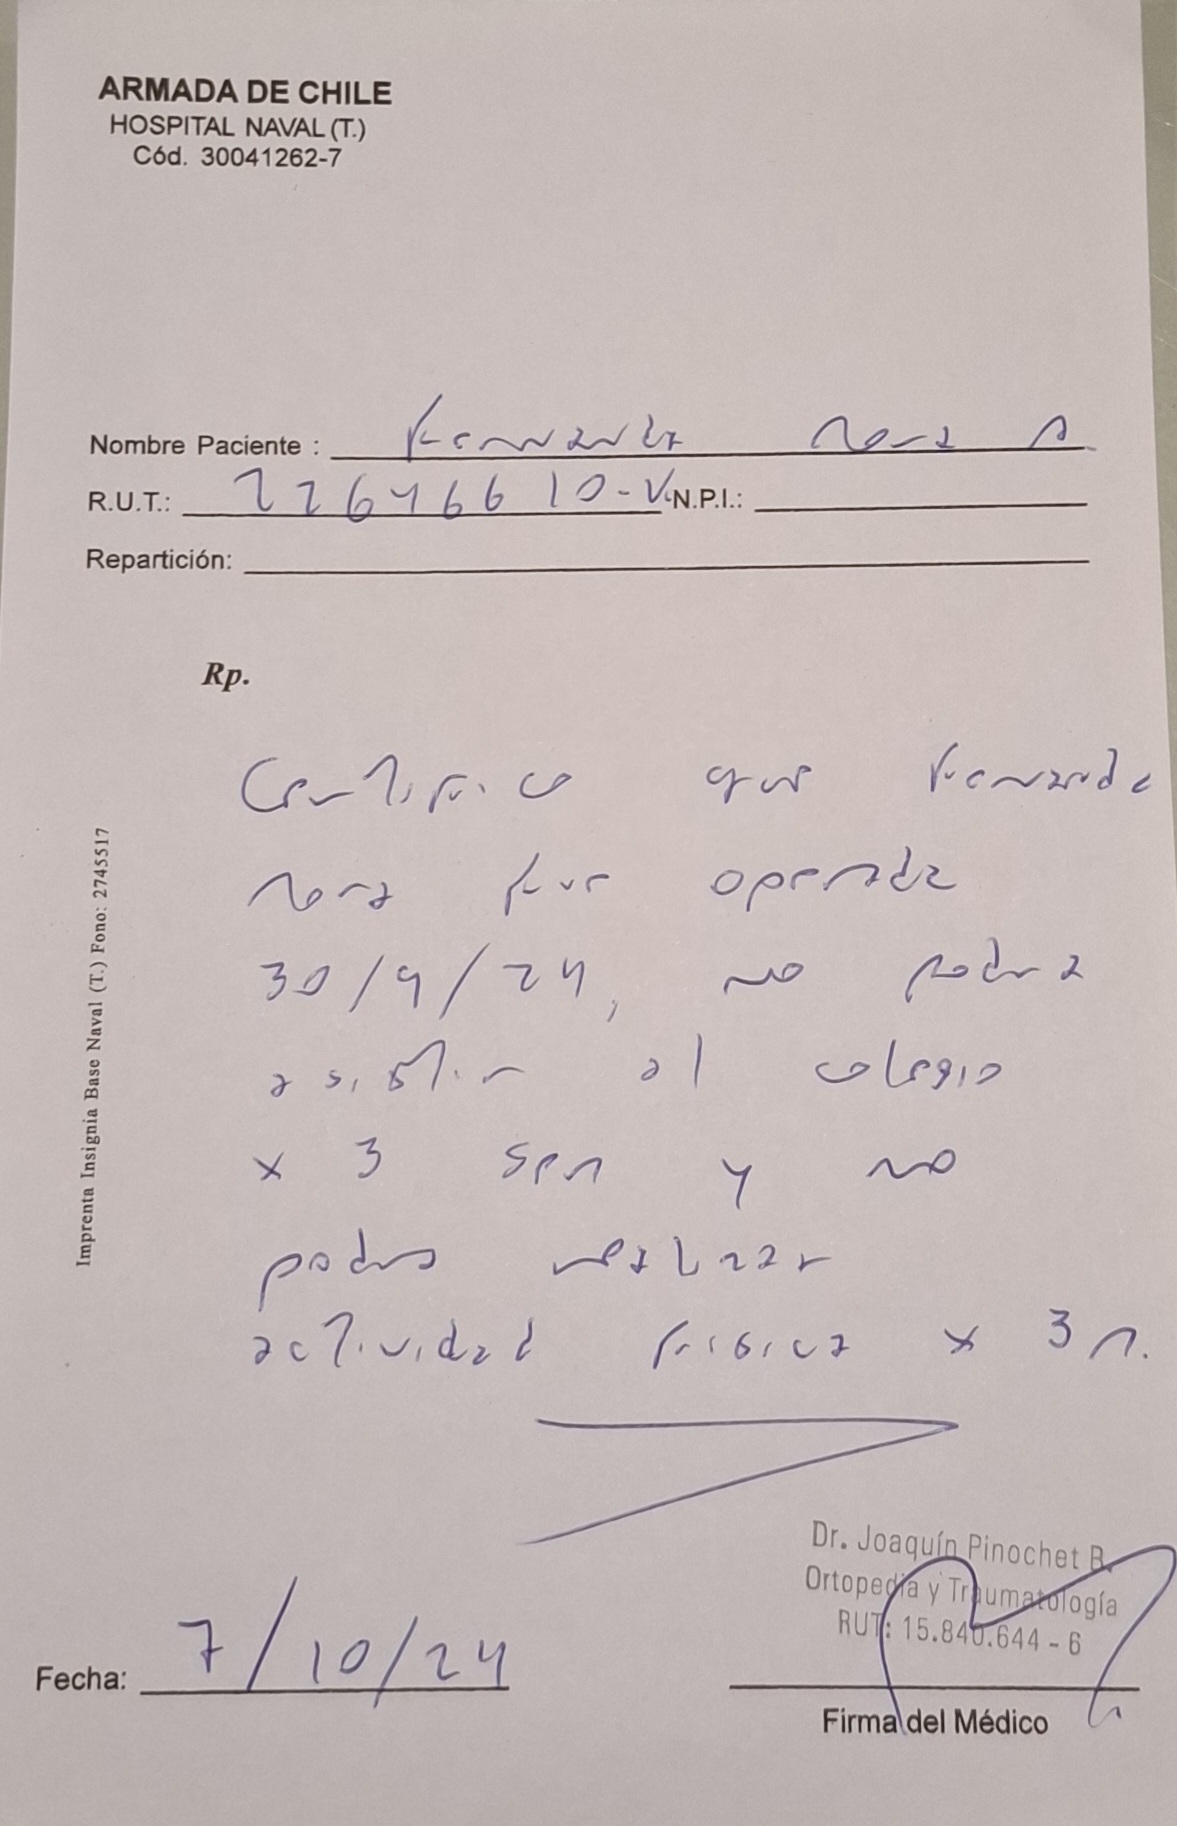 ARMADA DE CHILE
HOSPITAL NAVAL (T.)
Cód. 30041262-7
Nombre Paciente : Fernanda
R.U.T.: N.P.I.:
Repartición:
Rp.
Certifico que Fernanda
fue operada
30/9/24, no podra
asistir al colegio
x 3 sem y no
podra realizar
actividad fisica x 3 m.
Imprenta Insignia Base Naval (T.) Fono: 2745517
Dr. Joaquín Pinochet B.
Ortopedia y Traumatología
RUT: 15.840.644 - 6
Fecha: 7/10/24
Firma del Médico